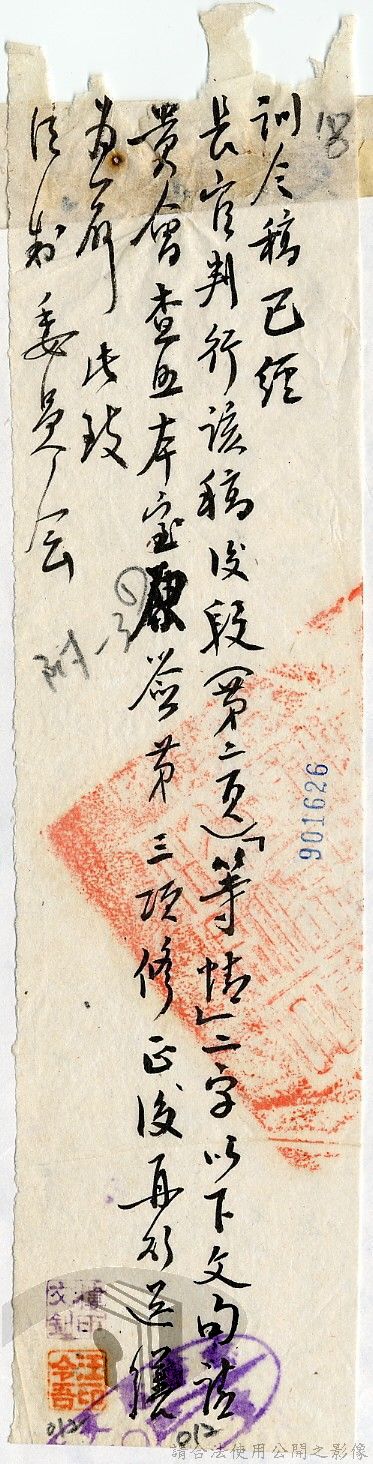 訓令稿已經
長官判行該稿後段(第二頁)「等情」二字以下文句請
貴會查照本室原簽第三項修正後再行送繕
為荷 此致
法制委員會
附一
901626
汪印
012
012
請合法使用公開之影像